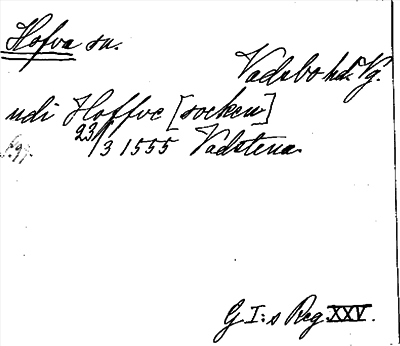 Hofva sn.
Vadsbo hd. Vg.
udi Hoffve [socken]
23/3 1555 Vadstena.
G I:s Reg. XXV.